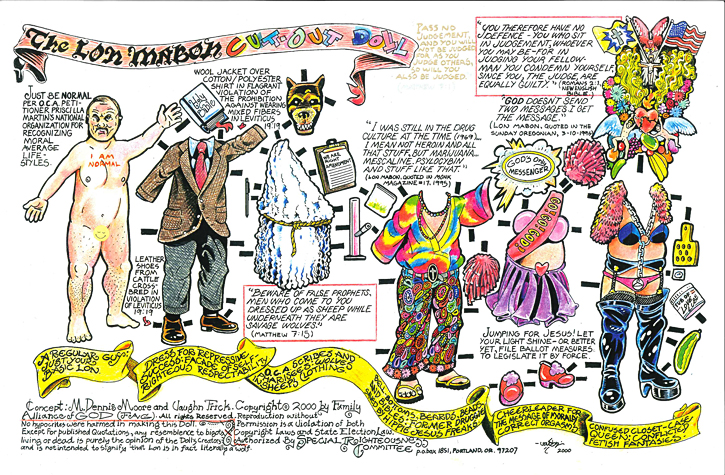 The Lon Mabon CUT-OUT DOLL
JUST BE NORMAL
PER O.C.A. PETI-
TIONER PRISCILLA
MARTIN'S NATIONAL
ORGANIZATION FOR
RECOGNIZING
MORAL
AVERAGE
LIFE-
STYLES.
I AM
NORMAL
WOOL JACKET OVER
COTTON/POLYESTER
SHIRT IN FLAGRANT
VIOLATION OF
THE PROHIBITION
AGAINST WEARING
MIXED FIBERS IN
LEVITICUS
19:19
Holy
Bible
LEATHER
SHOES
FROM
CATTLE
CROSS-
BRED IN
VIOLATION
OF LEVITICUS
19:19
"BEWARE OF FALSE PROPHETS,
MEN WHO COME TO YOU
DRESSED UP AS SHEEP WHILE
UNDERNEATH THEY ARE
SAVAGE WOLVES."
(MATTHEW 7:15)
PASS NO
JUDGEMENT,
AND YOU WILL
NOT BE JUDGED.
FOR AS YOU
JUDGE OTHERS,
SO WILL YOU
ALSO BE JUDGED.
"I WAS STILL IN THE DRUG
CULTURE AT THE TIME (1969)...
I MEAN NOT HEROIN AND ALL
THAT STUFF, BUT MARIJUANA,
MESCALINE, PSYLOCYBIN
AND STUFF LIKE THAT."
(LON MABON, QUOTED IN MONK
MAGAZINE #17, 1995)
"YOU THEREFORE HAVE NO
DEFENCE - YOU WHO SIT
IN JUDGEMENT, WHOEVER
YOU MAY BE - FOR IN
JUDGING YOUR FELLOW-
MAN YOU CONDEMN YOURSELF,
SINCE YOU, THE JUDGE, ARE
EQUALLY GUILTY." (ROMANS 2:1,
NEW ENGLISH
BIBLE)
"GOD DOESN'T SEND
TWO MESSAGES. I GET
THE MESSAGE."
(LON MABON, QUOTED IN THE
SUNDAY OREGONIAN, 3-10-1996)
GOD'S Only
MESSENGER
GO! GO! GOD!
JUMPING FOR JESUS! LET
YOUR LIGHT SHINE - OR BETTER
YET, FILE BALLOT MEASURES
TO LEGISLATE IT BY FORCE.
A REGULAR GUY:
JUST YOUR
BASIC LON.
DRESS FOR REPRESSIVE
SUCCESS: FACADE OF SELF-
RIGHTEOUS RESPECTABILITY
O.C.A. SCRIBES AND
PHARISEES IN
SHEEP'S CLOTHING
BEARDS, BEADS
FORMER DRUGGIE
JESUS FREAKS
CHEERLEADER FOR
THE MESSAGE OF MORALLY
CORRECT ORGASMS
CONFUSED CLOSET-CASE
QUEEN; CONFLICTED
FETISH FANTASIES
Concept: M. Dennis Moore and Vaughn Frick. Copyright © 2000 by Family
Alliance of GOD (FAG). All rights Reserved. Reproduction without
No hypocrites were harmed in making this Doll. Permission is a Violation of both
Except for published Quotations, any resemblance to bigots Copyright Laws and State Election Law.
living or dead is purely the opinion of the Dolls Creators Authorized By SPECIAL RIGHTEOUSNESS
and is not intended to signify that Lon is in fact literally a wolf. COMMITTEE P.O. BOX 1851, PORTLAND, OR. 97207
2000